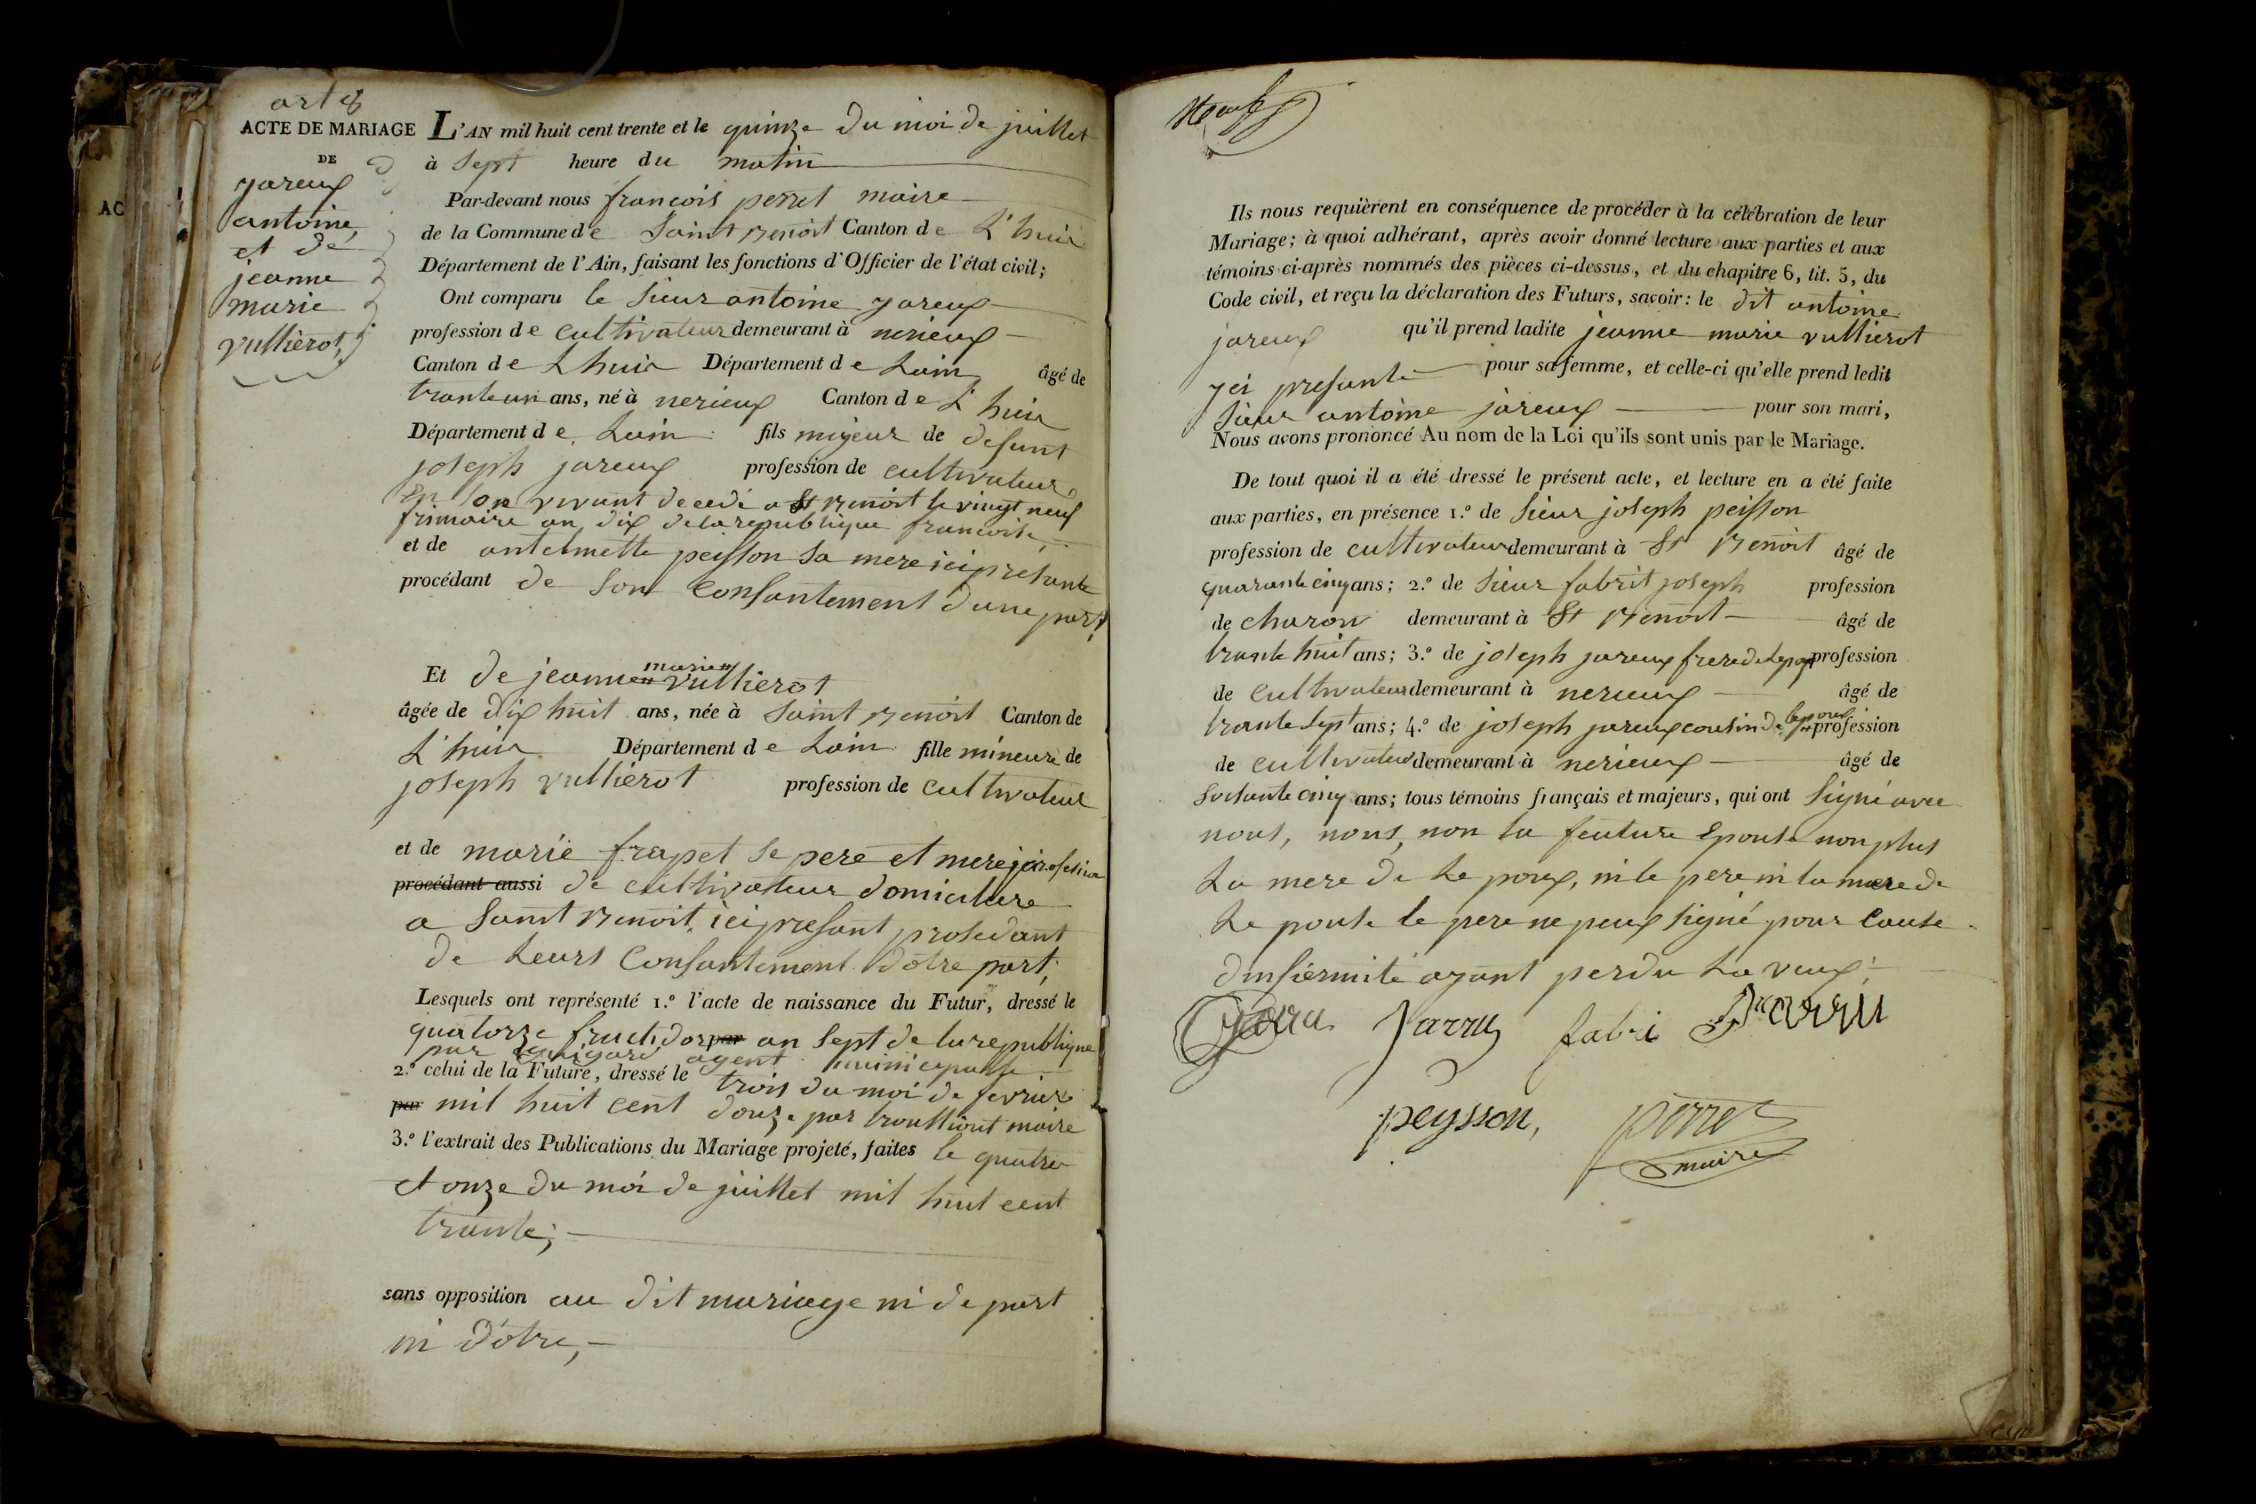 art 8
ACTE DE MARIAGE
DE
jareux
antoine,
et de
jeanne
marie
vullierot,
AC
L'AN mil huit cent trente et le quinze du moi de juillet
à sept heure du matin
Par-devant nous francois perret maire
de la Commune de Saint Benoit Canton de L'huis
Département de l'Ain, faisant les fonctions d'Officier de l'état civil;
Ont comparu le sieur antoine jareux
profession de cultivateur demeurant à nerieux
Canton de Lhuis Département de Lain âgé de
trante un ans, né à nerieux Canton de L'huis
Département de Lain fils majeur de defunt
joseph jareux profession de cultivateur
En son vivant decedé a St Benoit le vingt neuf
frimaire an dix de la republique francoise,
et de antelmette peisson sa mere ici presante
procédant de son consantement dune part,
Et de jeanne marie vullierot
âgée de dix huit ans, née à Saint Benoit Canton de
L'huis Département de Lain fille mineure de
joseph vullierot profession de cultivateur
et de marie frapet se pere et mere profession
procédant aussi de cultivateur domicilure
a Saint Benoit, ici presant prosedant
de Leurs consantement dotre part,
Lesquels ont représenté 1.º l'acte de naissance du Futur, dressé le
quatorze fructidor par an sept de la republique
par agent municipalle
2.º celui de la Future, dressé le trois du moi de fevrier
par mil huit cent douze par troulliout maire
3.º l'extrait des Publications du Mariage projeté, faites le quatre
et onze du moi de juillet mil huit cent
trante;
sans opposition au dit mariage ni de part
ni d'otre,
Neuf
Ils nous requièrent en conséquence de procéder à la célébration de leur
Mariage; à quoi adhérant, après avoir donné lecture aux parties et aux
témoins ci-après nommés des pièces ci-dessus, et du chapitre 6, tit. 5, du
Code civil, et reçu la déclaration des Futurs, savoir: le dit antoine
jareux qu'il prend ladite jeanne marie vullierot
yci presante pour sa femme, et celle-ci qu'elle prend ledit
sieur antoine jareux pour son mari,
Nous avons prononcé Au nom de la Loi qu'ils sont unis par le Mariage.
De tout quoi il a été dressé le présent acte, et lecture en a été faite
aux parties, en présence 1.º de sieur joseph peisson
profession de cultivateur demeurant à St Benoit âgé de
quarante cinq ans; 2.º de sieur fabrit joseph profession
de charon demeurant à St Benoit âgé de
trante huit ans; 3.º de joseph jareux frere de Lepoux profession
de cultivateur demeurant à nerieux âgé de
trante sept ans; 4.º de joseph jareux cousin de lepoux profession
de cultivateur demeurant à nerieux âgé de
soisante cinq ans; tous témoins français et majeurs, qui ont signé avec
nous, nous, non la feuture Epouse non plus
La mere de Le poux, ni le pere ni la mere de
Le pouse le pere ne peux signé pour cause
dinfiermité ayant perdu La veux;
Jarru Jarru fabri Jarru
peysson, perret
maire